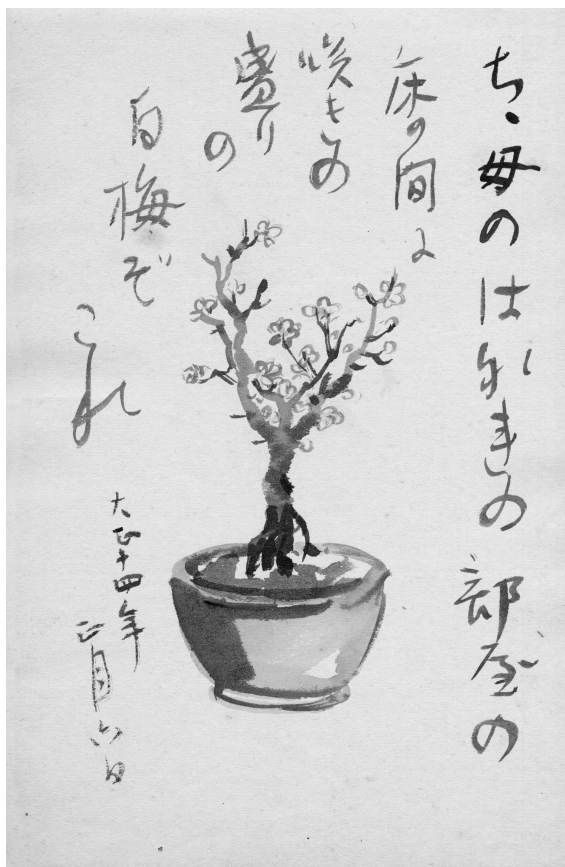 ちゝ母のはなれの部屋の
床の間に
咲きの
盛りの
白梅ぞ
これ
大正十四年
正月六日